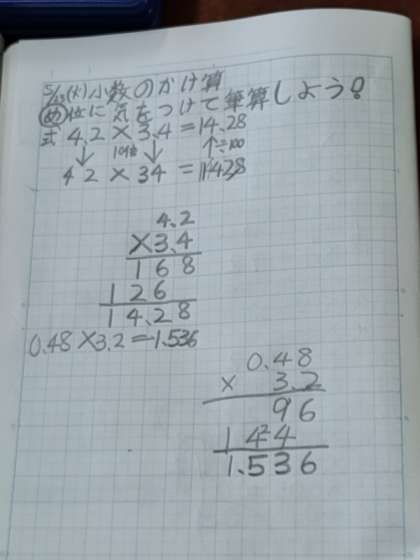 5/23(火)小数のかけ算
め 位に気をつけて筆算しよう!
式 4.2×3.4=14.28
↓ 10倍 ↓ ↑÷100
42×34=1428
4.2
×3.4
168
126
14.28
0.48×3.2=1.536
0.48
× 3.2
96
144
1.536